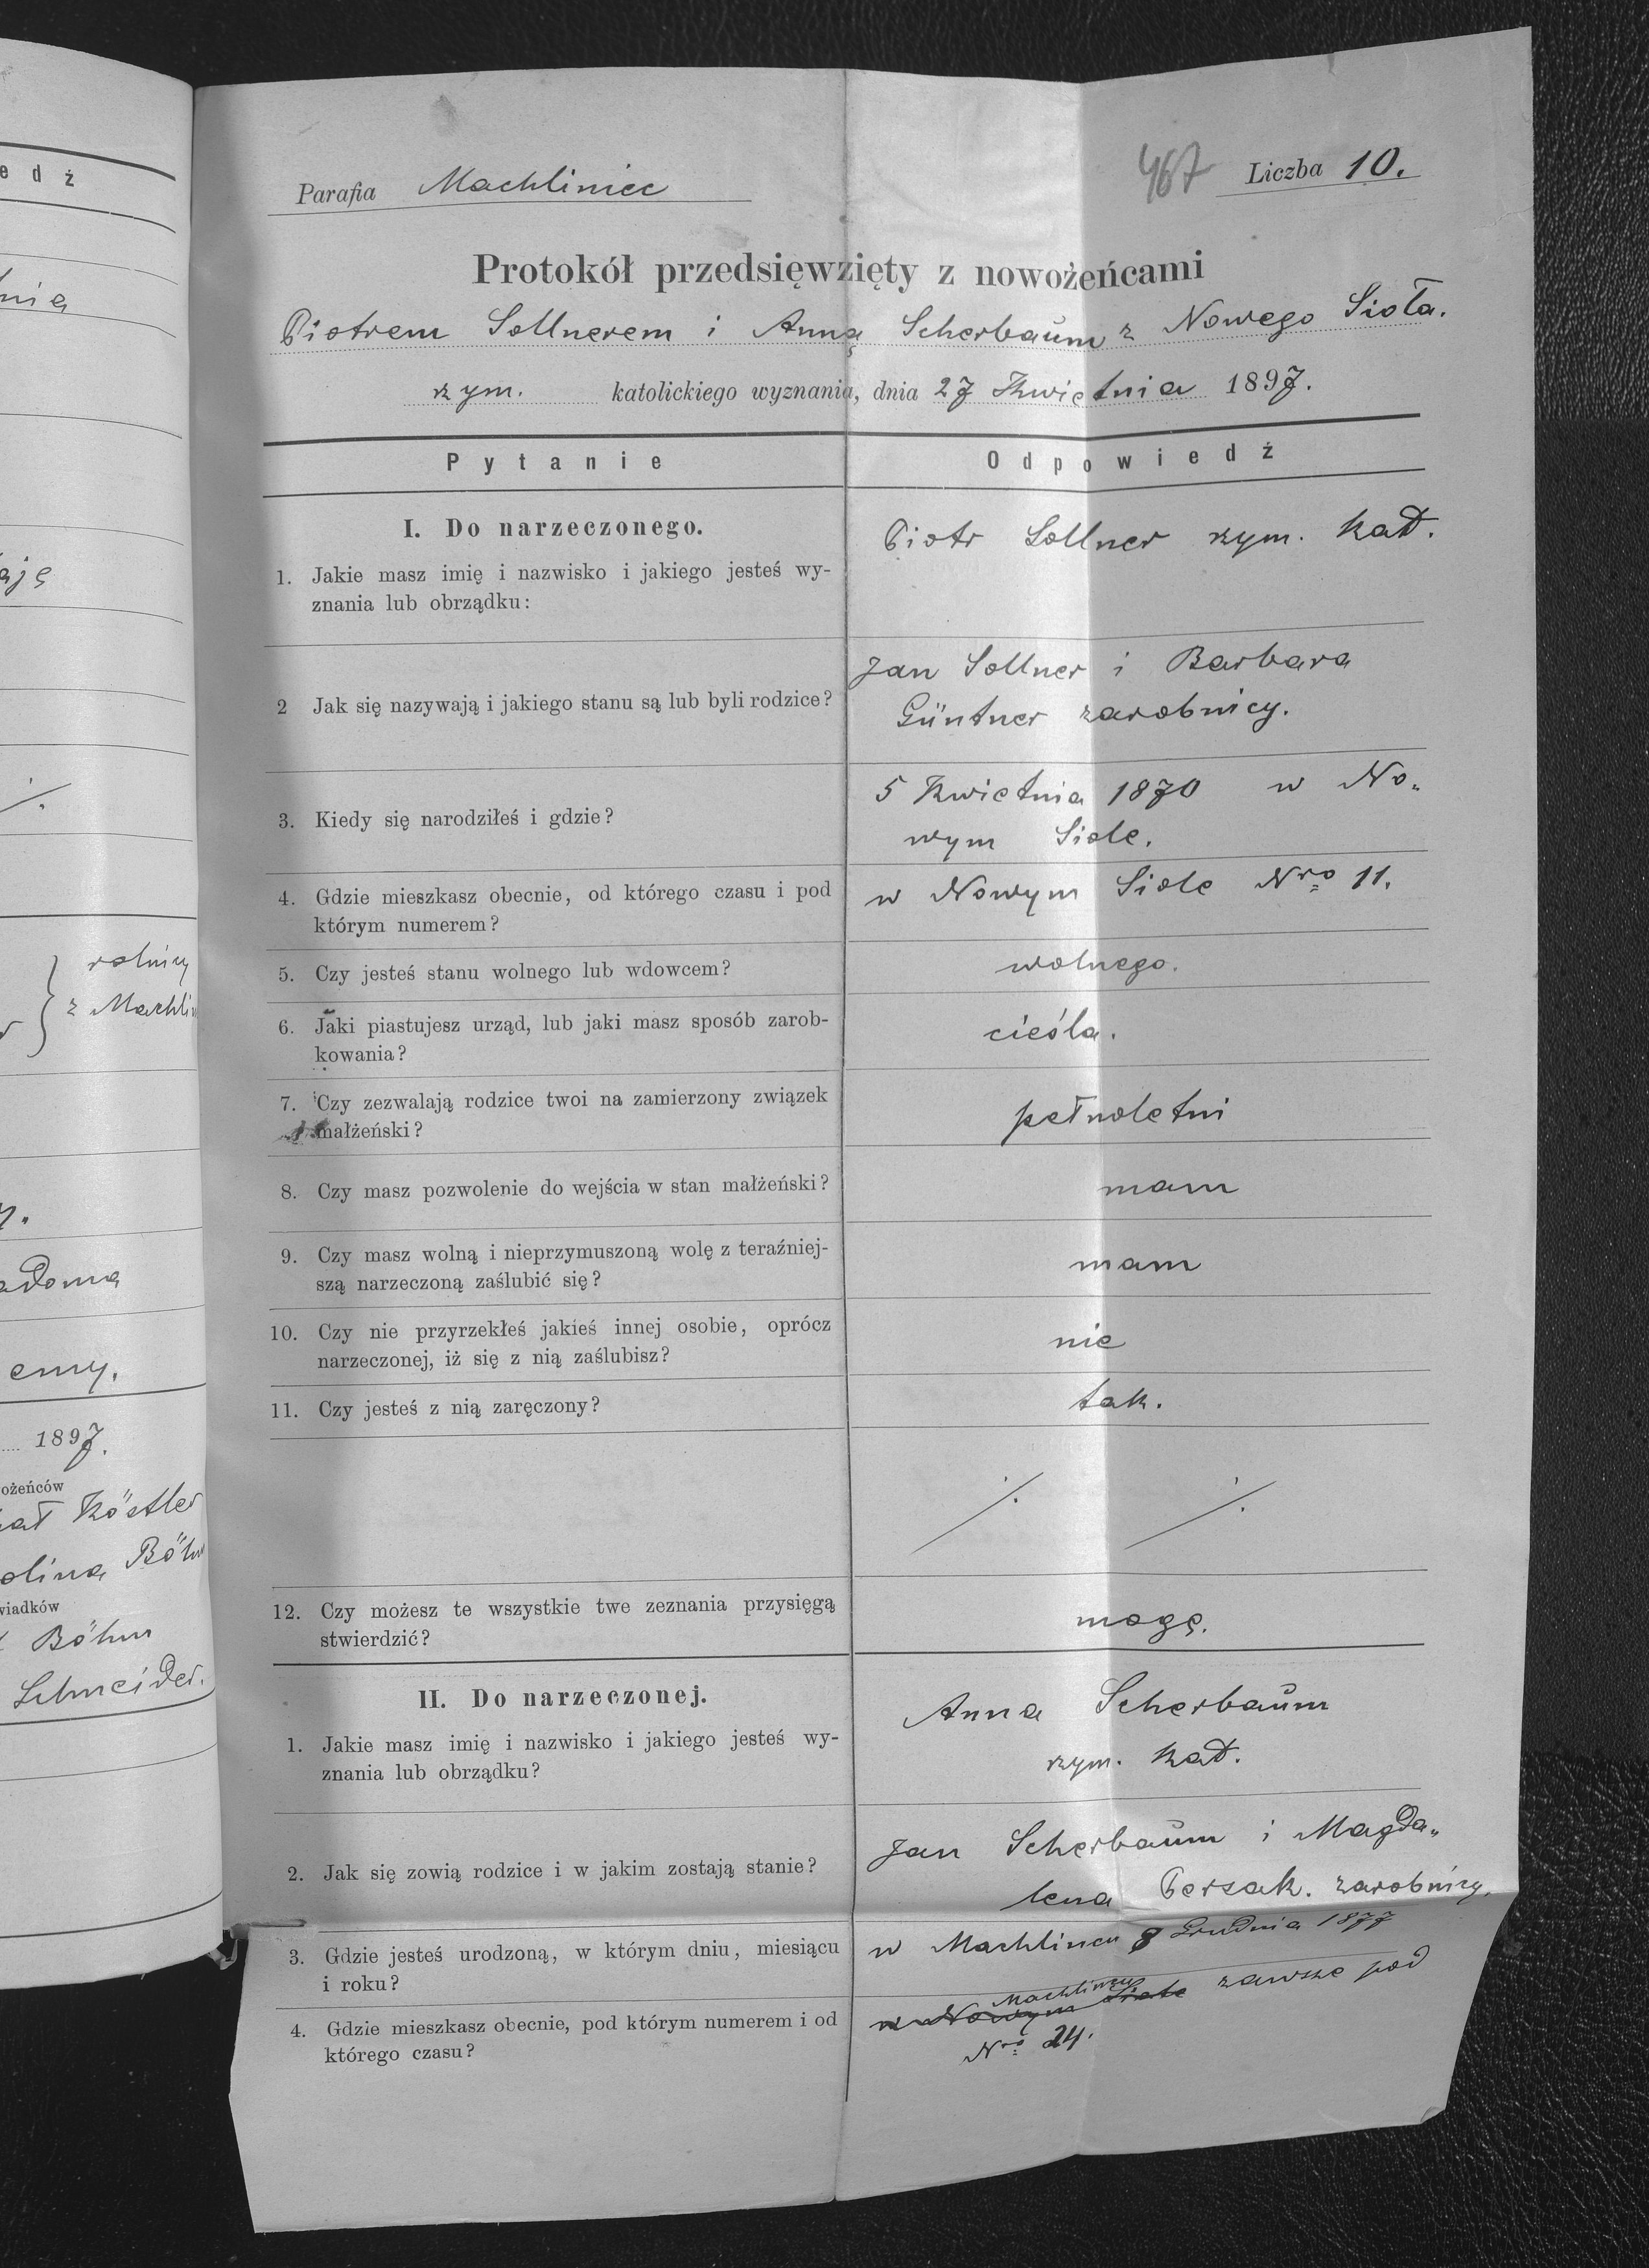 edź
nia
ają
rolnicy
z Machlin
adoma
emy.
1897.
ożeńców
Köstler
olina Böhm
wiadków
Böhm
Schneider.
Parafia Machliniec
467 Liczba 10.
Protokół przedsięwzięty z nowożeńcami
Piotrem Sollnerem i Anną Scherbaum z Nowego Sioła.
rzym. katolickiego wyznania, dnia 27 Kwietnia 1897.
Pytanie Odpowiedź
I. Do narzeczonego.
1. Jakie masz imię i nazwisko i jakiego jesteś wy-
znania lub obrządku:
Piotr Sollner rzym. kat.
2 Jak się nazywają i jakiego stanu są lub byli rodzice?
Jan Sollner i Barbara
Güntner zarobnicy.
3. Kiedy się narodziłeś i gdzie?
5 Kwietnia 1870 w No„
wym Siole.
4. Gdzie mieszkasz obecnie, od którego czasu i pod
którym numerem?
w Nowym Siole Nro 11.
5. Czy jesteś stanu wolnego lub wdowcem?
wolnego.
6. Jaki piastujesz urząd, lub jaki masz sposób zarob-
kowania?
cieśla.
7. Czy zezwalają rodzice twoi na zamierzony związek
małżeński?
pełnoletni
8. Czy masz pozwolenie do wejścia w stan małżeński?
mam
9. Czy masz wolną i nieprzymuszoną wolę z teraźniej-
szą narzeczoną zaślubić się?
mam
10. Czy nie przyrzekłeś jakieś innej osobie, oprócz
narzeczonej, iż się z nią zaślubisz?
nie
11. Czy jesteś z nią zaręczony?
tak.
./. ./.
12. Czy możesz te wszystkie twe zeznania przysięgą
stwierdzić?
mogę.
II. Do narzeczonej.
1. Jakie masz imię i nazwisko i jakiego jesteś wy-
znania lub obrządku?
Anna Scherbaum
rzym. kat.
2. Jak się zowią rodzice i w jakim zostają stanie?
Jan Scherbaum i Magda„
lena Perzak. zarobnicy,
3. Gdzie jesteś urodzoną, w którym dniu, miesiącu
i roku?
w Machlincu 8 Grudnia 1877
4. Gdzie mieszkasz obecnie, pod którym numerem i od
którego czasu?
Machlincu
w Nowym Siole zawsze pod
Nro 24.